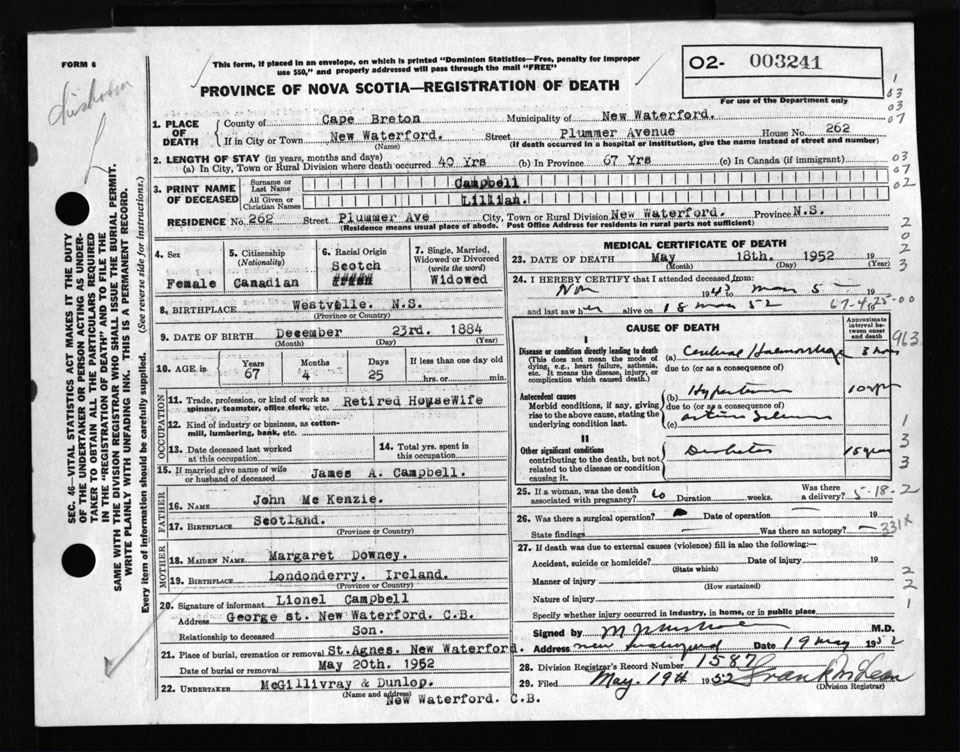 FORM 6
This form, if placed in an envelope, on which is printed "Dominion Statistics—Free, penalty for improper
use $50," and properly addressed will pass through the mail "FREE"
O2- 003241
For use of the Department only
PROVINCE OF NOVA SCOTIA—REGISTRATION OF DEATH
SEC. 46—VITAL STATISTICS ACT MAKES IT THE DUTY
OF THE UNDERTAKER OR PERSON ACTING AS UNDER-
TAKER TO OBTAIN ALL THE PARTICULARS REQUIRED
IN THE "REGISTRATION OF DEATH" AND TO FILE THE
SAME WITH THE DIVISION REGISTRAR WHO SHALL ISSUE THE BURIAL PERMIT.
WRITE PLAINLY WITH UNFADING INK. THIS IS A PERMANENT RECORD.
Every item of information should be carefully supplied. (See reverse side for instructions.)
1. PLACE OF DEATH
County of Cape Breton Municipality of New Waterford.
If in City or Town New Waterford. Street Plummer Avenue House No. 262
(Name) (If death occurred in a hospital or institution, give the name instead of street and number)
2. LENGTH OF STAY (in years, months and days)
(a) In City, Town or Rural Division where death occurred 40 Yrs (b) In Province 67 Yrs (c) In Canada (if immigrant)
3. PRINT NAME OF DECEASED
Surname or Last Name Campbell
All Given or Christian Names Lillian.
RESIDENCE No. 262 Street Plummer Ave City, Town or Rural Division New Waterford. Province N.S.
(Residence means usual place of abode. Post Office Address for residents in rural parts not sufficient)
4. Sex Female
5. Citizenship (Nationality) Canadian
6. Racial Origin Scotch
7. Single, Married, Widowed or Divorced (write the word) Widowed
8. BIRTHPLACE Westville. N.S.
(Province or Country)
9. DATE OF BIRTH December 23rd. 1884
(Month) (Day) (Year)
10. AGE in Years 67 Months 4 Days 25 If less than one day old hrs. or min.
OCCUPATION
11. Trade, profession, or kind of work as
spinner, teamster, office clerk, etc. Retired HouseWife
12. Kind of industry or business, as cotton-
mill, lumbering, bank, etc.
13. Date deceased last worked
at this occupation
14. Total yrs. spent in
this occupation
15. If married give name of wife
or husband of deceased James A. Campbell.
FATHER
16. NAME John Mc Kenzie.
17. BIRTHPLACE Scotland.
(Province or Country)
MOTHER
18. MAIDEN NAME Margaret Downey.
19. BIRTHPLACE Londonderry. Ireland.
(Province or Country)
20. Signature of informant Lionel Campbell
Address George st. New Waterford. C.B.
Relationship to deceased Son.
21. Place of burial, cremation or removal St.Agnes. New Waterford.
Date of burial or removal May 20th. 1952
22. UNDERTAKER McGillivray & Dunlop.
(Name and address)
New Waterford. C.B.
MEDICAL CERTIFICATE OF DEATH
23. DATE OF DEATH May 18th. 1952 19
(Month) (Day) (Year)
24. I HEREBY CERTIFY that I attended deceased from:
Nov 1943 to May 5
and last saw her alive on 18 May 52
67-4-25-00
CAUSE OF DEATH
Approximate interval between onset and death
I
Disease or condition directly leading to death
(This does not mean the mode of
dying, e.g., heart failure, asthenia,
etc. It means the disease, injury, or
complication which caused death.)
(a) Cerebral Haemorrhage 3 hours
due to (or as a consequence of)
Antecedent causes
Morbid conditions, if any, giving
rise to the above cause, stating the
underlying condition last.
(b) Hypertension 10 yrs
due to (or as a consequence of)
(c)
II
Other significant conditions
contributing to the death, but not
related to the disease or condition
causing it.
Diabetes 15 years
25. If a woman, was the death
associated with pregnancy? no Duration weeks. Was there a delivery?
5-18-2
26. Was there a surgical operation? Date of operation 19
State findings Was there an autopsy?
331X
27. If death was due to external causes (violence) fill in also the following:—
Accident, suicide or homicide? Date of injury 19
(State which)
Manner of injury
(How sustained)
Nature of injury
Specify whether injury occurred in industry, in home, or in public place
Signed by M.D.
Address New Waterford Date 19 May 1952
28. Division Registrar's Record Number 1587
29. Filed May. 19th 1952 Frank McLean
(Division Registrar)
1
03
03
07
03
07
02
2
0
2
3
963
1
3
3
2
2
1